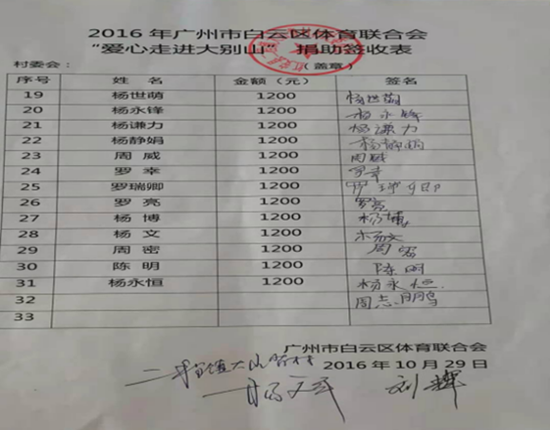 2016年广州市白云区体育联合会
“爱心走进大别山” 捐助签收表
村委会： （盖章）
序号 姓 名 金额（元） 签名
19 杨世萌 1200 杨世萌
20 杨永锋 1200 杨永锋
21 杨谦力 1200 杨谦力
22 杨静娟 1200 杨静娟
23 周 威 1200 周威
24 罗 幸 1200 罗幸
25 罗瑞卿 1200
26 罗 亮 1200 罗亮
27 杨 博 1200 杨博
28 杨 文 1200 杨文
29 周 密 1200 周密
30 陈 明 1200 陈明
31 杨永恒 1200 杨永恒
32 周志鹏
33
广州市白云区体育联合会
2016年10月29日
刘辉